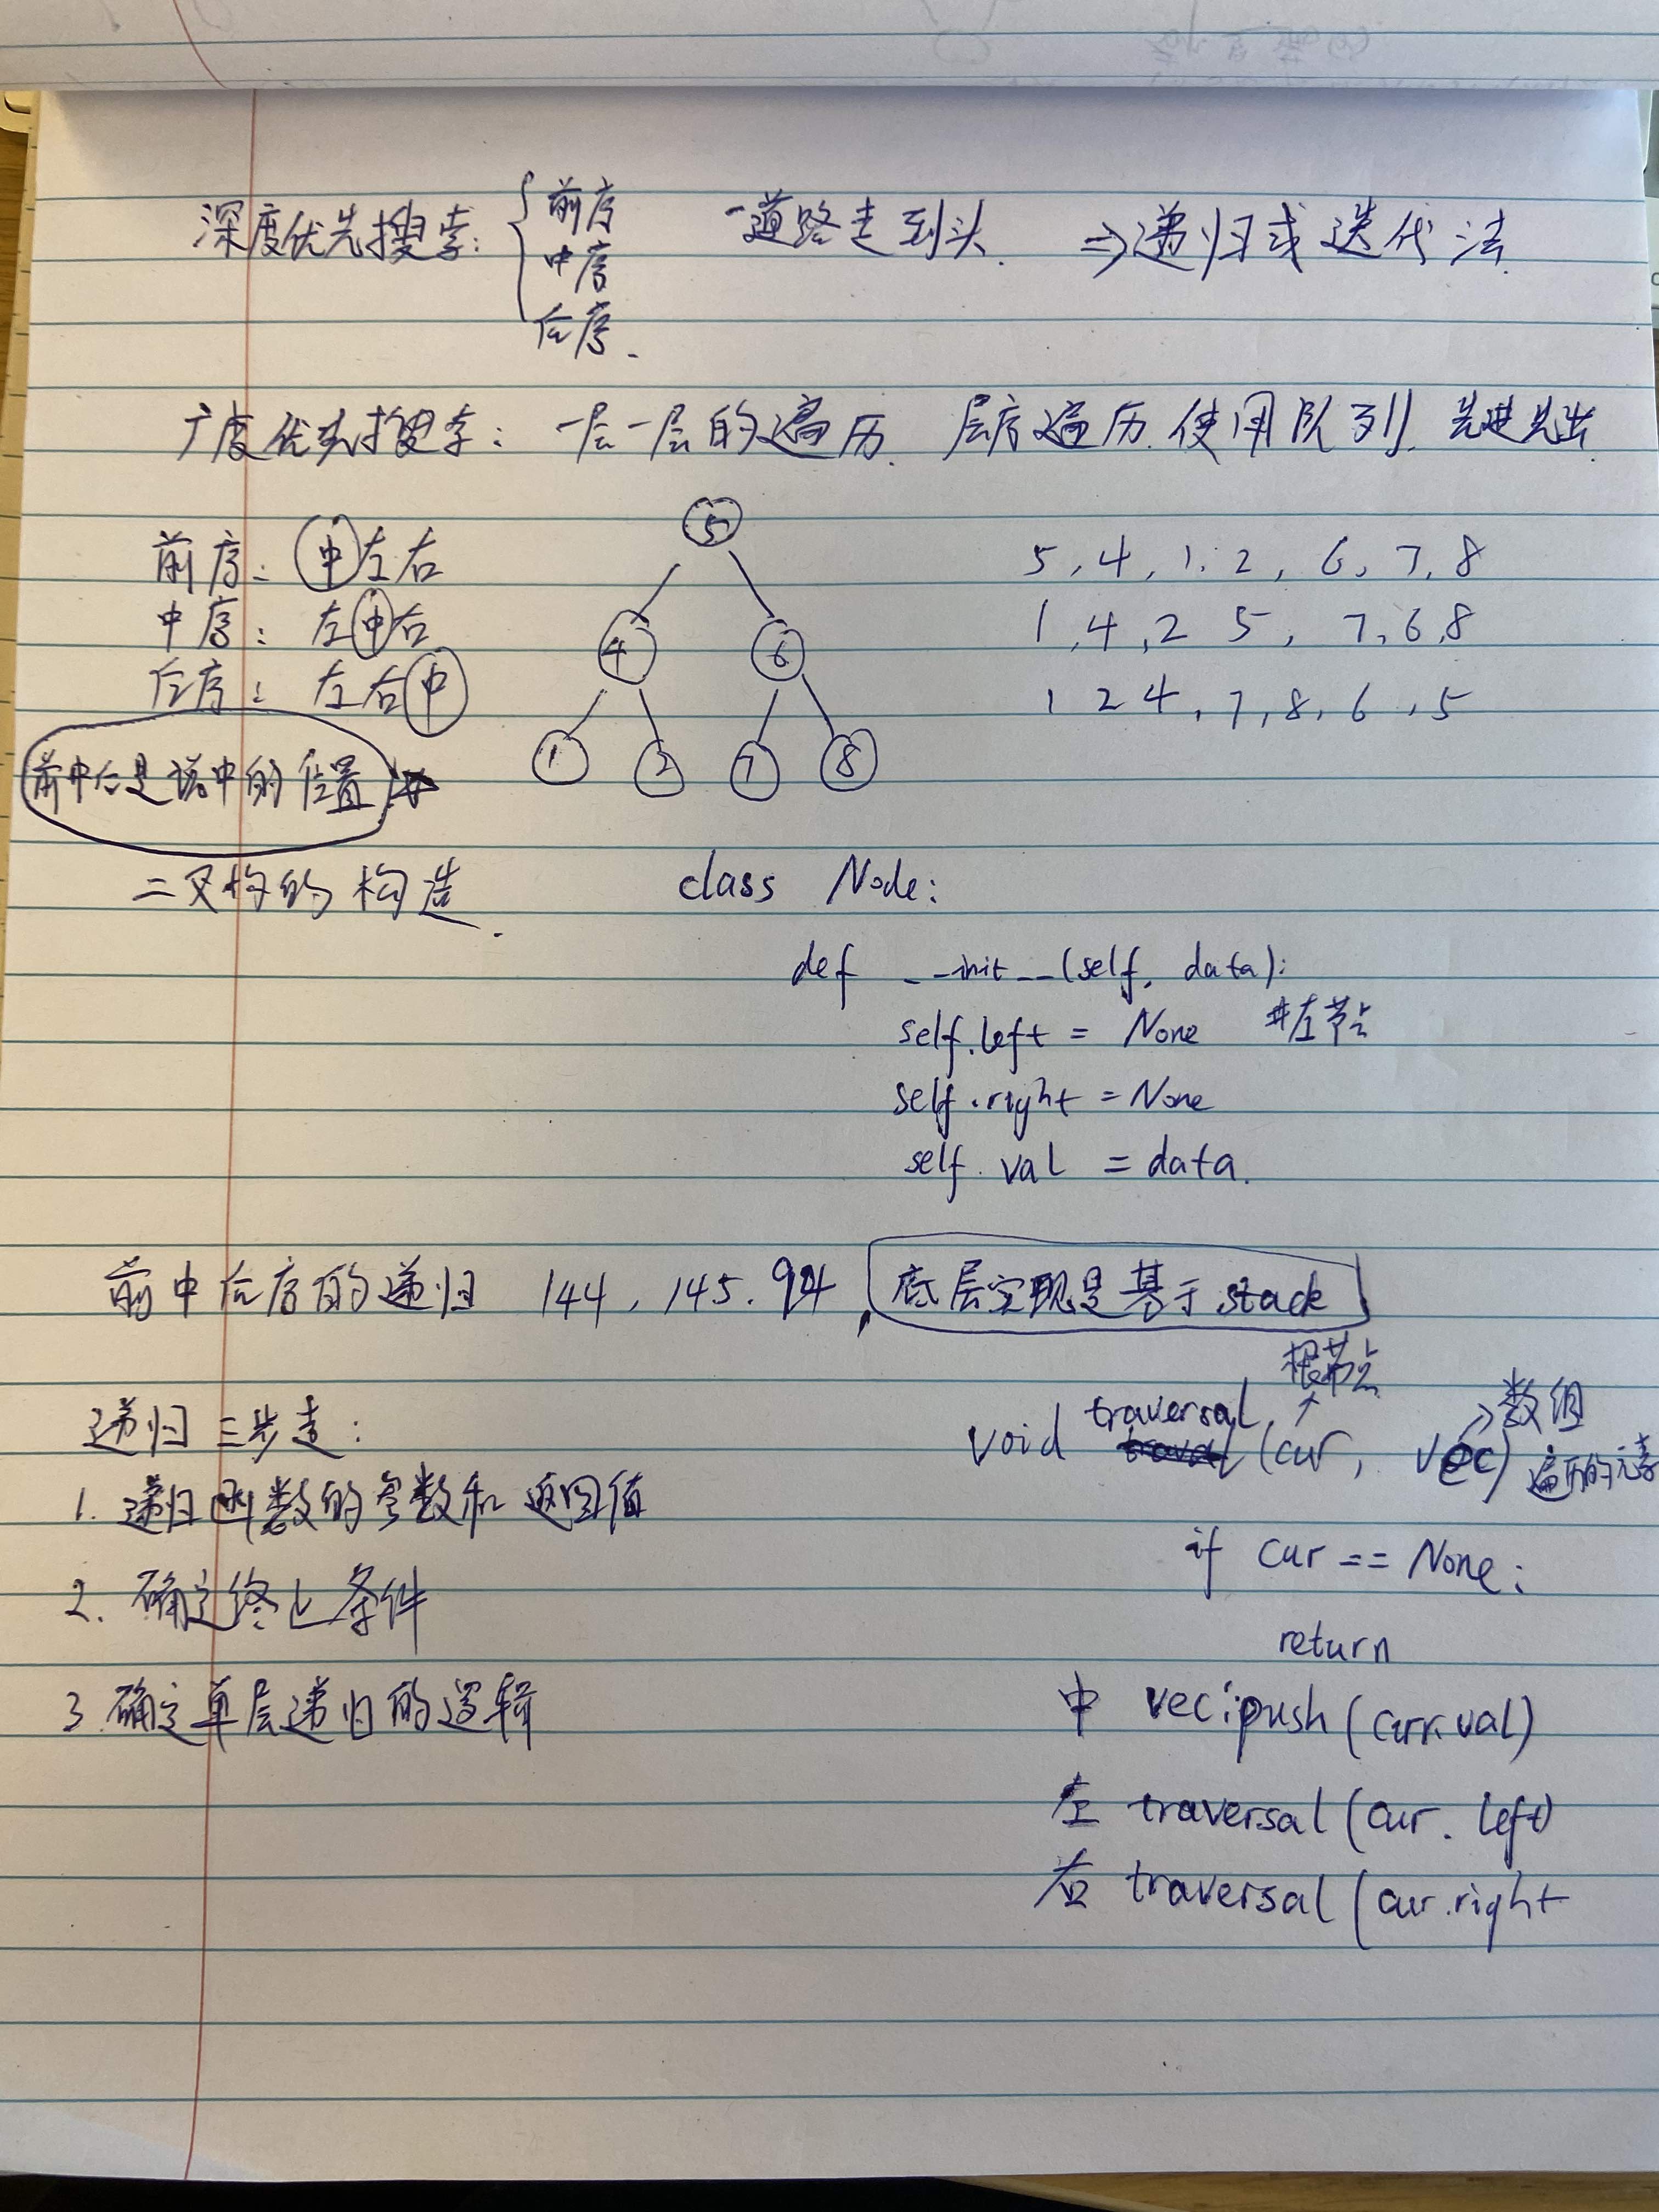 深度优先搜索: { 前序 一道路走到头. ⇒ 递归或迭代法.
中序
后序.
广度优先搜索: 一层一层的遍历. 层序遍历. 使用队列. 先进先出.
前序: 中左右
中序: 左中右
后序: 左右中
前中后是说中的位置
5
4 6
1 2 7 8
5, 4, 1, 2, 6, 7, 8
1, 4, 2 5, 7, 6, 8
1 2 4, 7, 8, 6, 5
二叉树的构造.
class Node:
def __init__(self, data):
self.left = None #左节点
self.right = None
self.val = data.
前中后序的递归 144, 145. 94, 底层实现是基于stack
递归三步走:
1. 递归函数的参数和返回值
2. 确定终止条件
3. 确定单层递归的逻辑
根节点
→ 数组
void traversal (cur, vec) 遍历的元素
if cur == None:
return
中 vec.push(curr.val)
左 traversal (cur. left)
右 traversal (cur.right